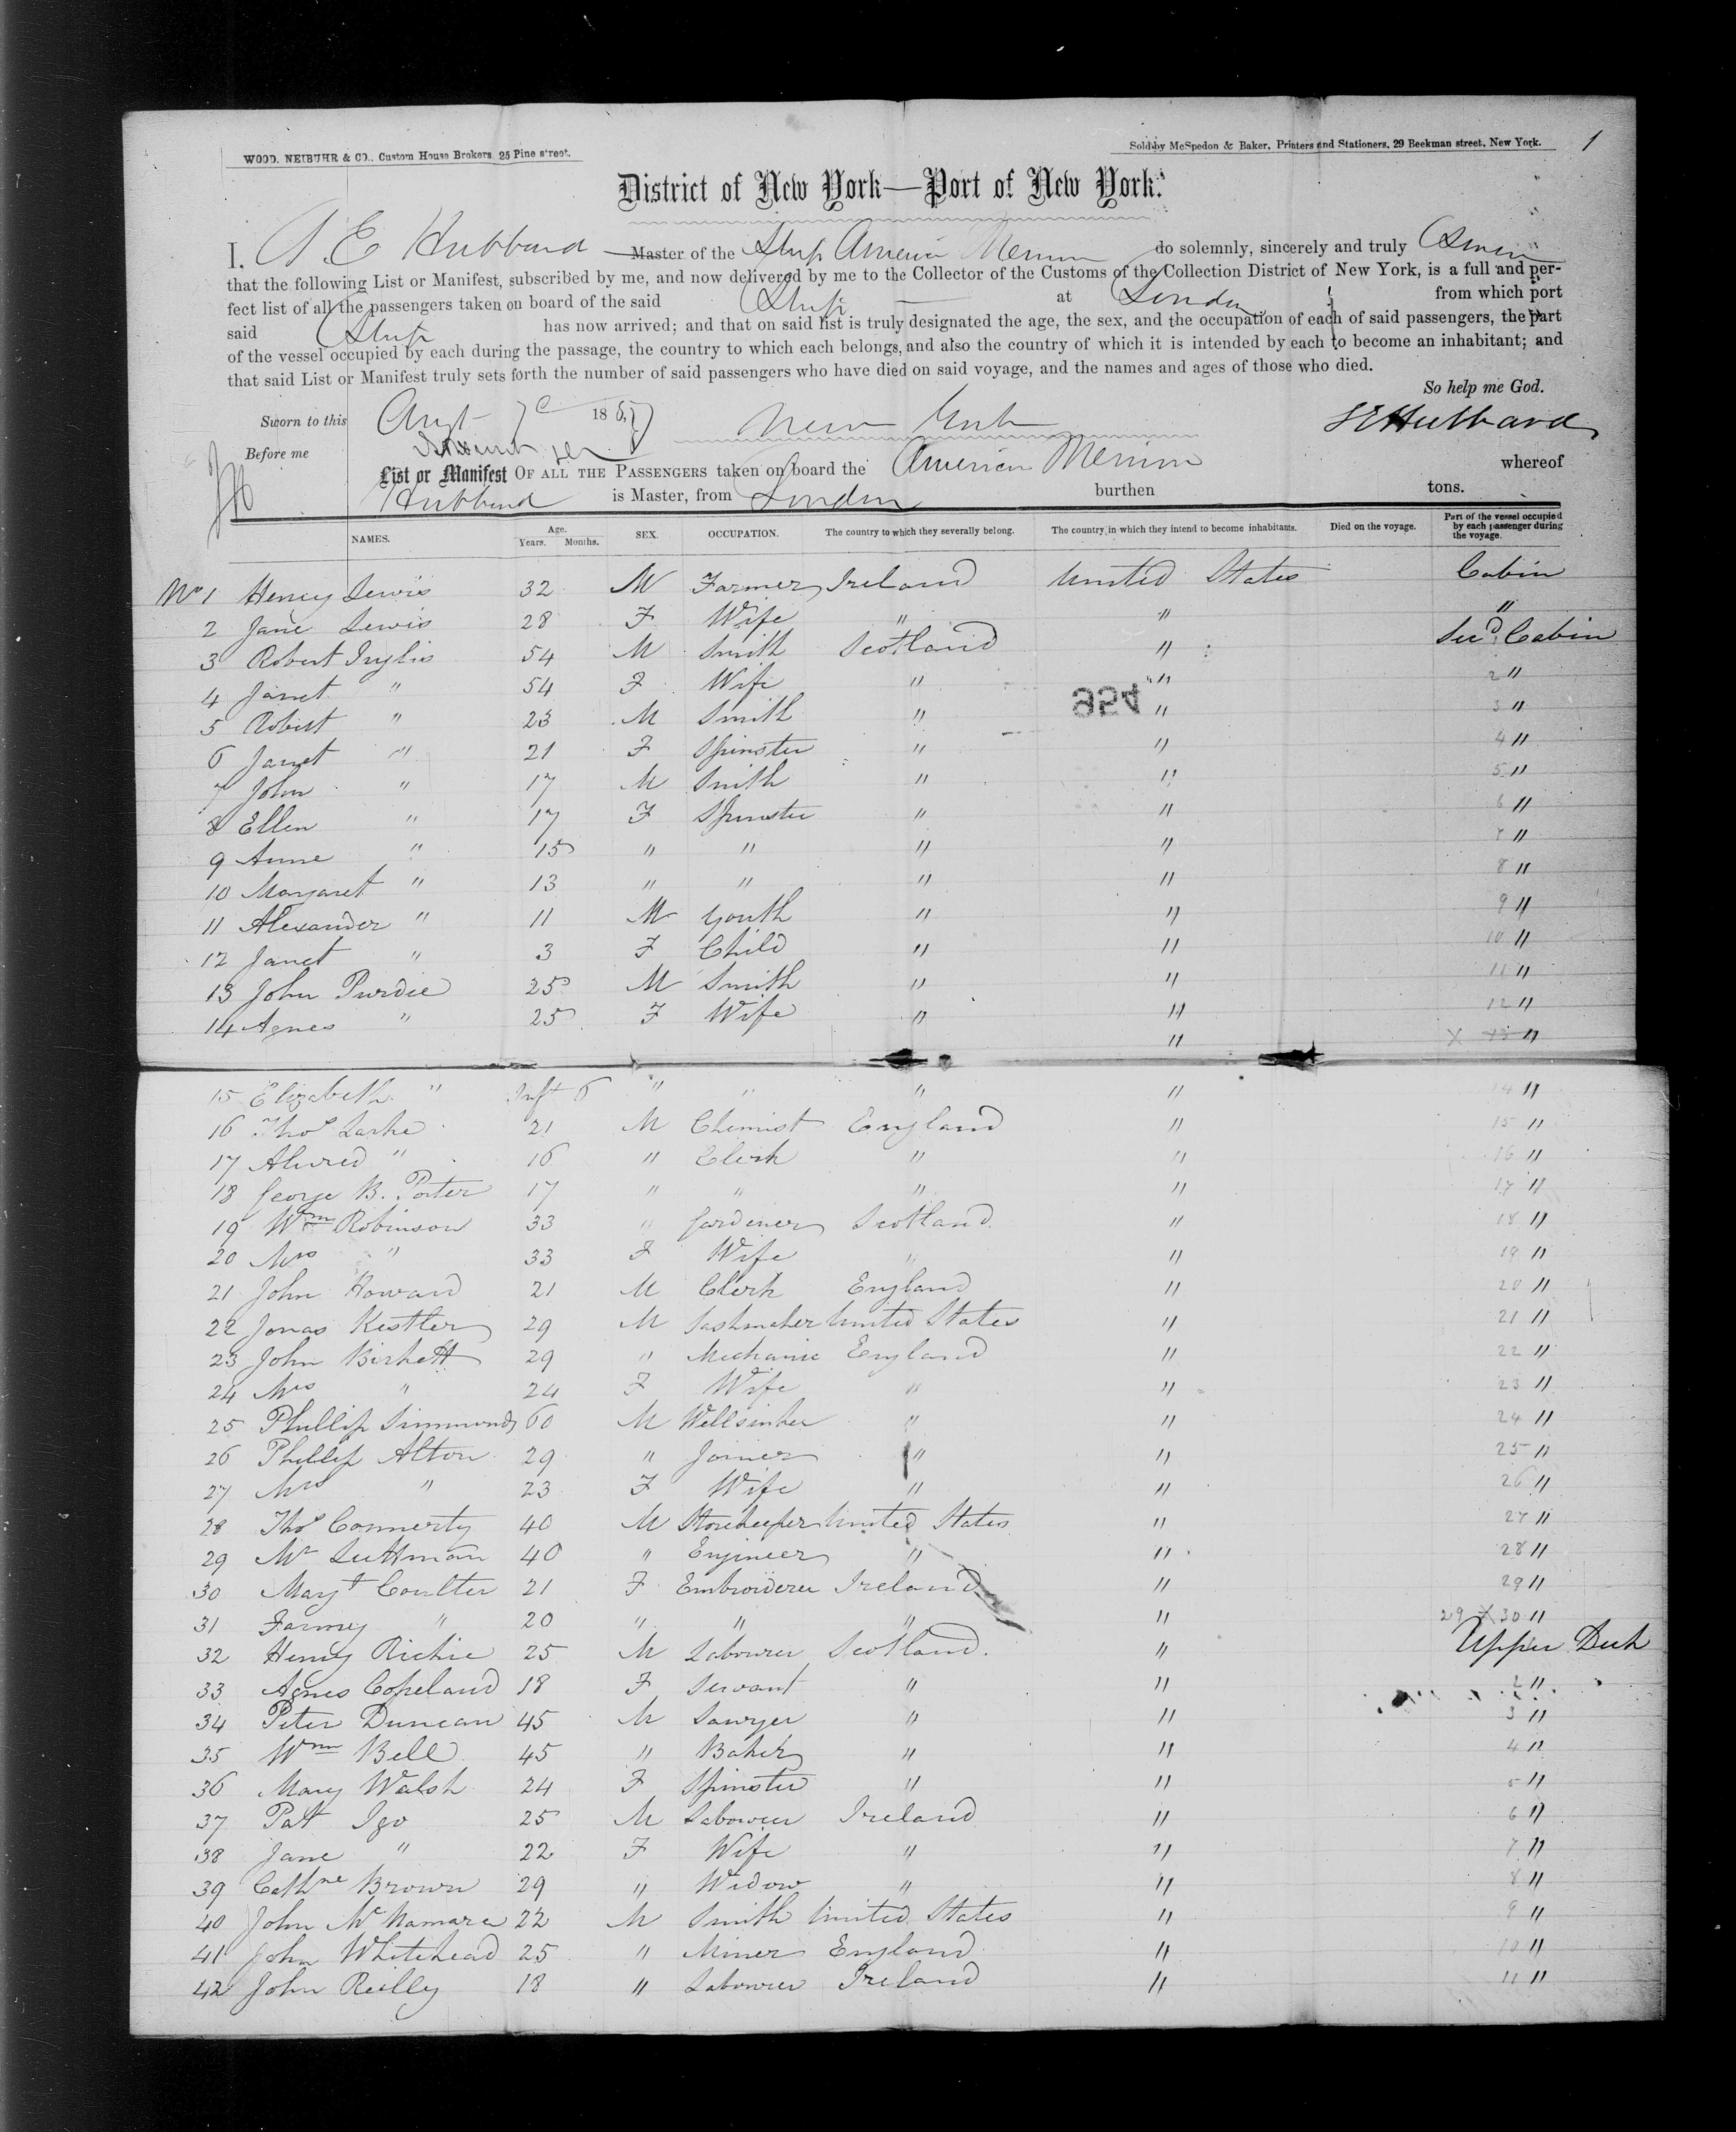 WOOD, NEIBUHR & CO., Custom House Brokers, 25 Pine street.
Sold by McSpedon & Baker, Printers and Stationers, 29 Beekman street, New York.
1
District of New York—Port of New York.
I, S E Hubbard Master of the Ship American do solemnly, sincerely and truly Swear
that the following List or Manifest, subscribed by me, and now delivered by me to the Collector of the Customs of the Collection District of New York, is a full and per-
fect list of all the passengers taken on board of the said Ship at London from which port
said Ship has now arrived; and that on said list is truly designated the age, the sex, and the occupation of each of said passengers, the part
of the vessel occupied by each during the passage, the country to which each belongs, and also the country of which it is intended by each to become an inhabitant; and
that said List or Manifest truly sets forth the number of said passengers who have died on said voyage, and the names and ages of those who died.
So help me God.
Sworn to this Augt 7 1857 New York
S E Hubbard
Before me
List or Manifest OF ALL THE PASSENGERS taken on board the American whereof
Hubbard is Master, from London burthen tons.
NAMES. Age. Years. Months. SEX. OCCUPATION. The country to which they severally belong. The country in which they intend to become inhabitants. Died on the voyage. Part of the vessel occupied by each passenger during the voyage.
No 1 Henry Lewis 32 M Farmer Ireland United States Cabin
2 Jane Lewis 28 F Wife " " "
3 Robert Inglis 54 M Smith Scotland " Secd Cabin
4 Janet " 54 F Wife " " 2 "
954
5 Robert " 23 M Smith " " 3 "
6 Janet " 21 F Spinster " " 4 "
7 John " 17 M Smith " " 5 "
8 Ellen " 17 F Spinster " " 6 "
9 Anne " 15 " " " " 7 "
10 Margaret " 13 " " " " 8 "
11 Alexander " 11 M Youth " " 9 "
12 Janet " 3 F Child " " 10 "
13 John Purdie 25 M Smith " " 11 "
14 Agnes " 25 F Wife " " 12 "
" X 13 "
15 Elizabeth " Inft 6 " " " " 14 "
16 Thos Larke 21 M Chemist England " 15 "
17 Alured " 16 " Clerk " " 16 "
18 George B. Porter 17 " " " " 17 "
19 Wm Robinson 33 " Gardener Scotland " 18 "
20 Mrs " 33 F Wife " " 19 "
21 John Howard 21 M Clerk England " 20 "
22 Jonas Kestler 29 M Sashmaker United States " 21 "
23 John Birkett 29 " Mechanic England " 22 "
24 Mrs " 24 F Wife " " 23 "
25 Phillip Simmonds 60 M Wellsinker " " 24 "
26 Phillip Alton 29 " Joiner " " 25 "
27 Mrs " 23 F Wife " " 26 "
28 Thos Connerty 40 M Storekeeper United States " 27 "
29 Mr Luttman 40 " Engineer " " 28 "
30 Margt Coulter 21 F Embroiderer Ireland " 29 "
31 Fanny " 20 " " " " 29 X 30 "
32 Henry Richie 25 M Labourer Scotland. " Upper Deck
33 Agnes Copeland 18 F Servant " " 2 "
34 Peter Duncan 45 M Sawyer " " 3 "
35 Wm Bell 45 " Baker " " 4 "
36 Mary Walsh 24 F Spinster " " 5 "
37 Pat Igo 25 M Labourer Ireland " 6 "
38 Jane " 22 F Wife " " 7 "
39 Cathne Brown 29 " Widow " " 8 "
40 John McNamara 22 M Smith United States " 9 "
41 John Whitehead 25 " Miner England " 10 "
42 John Reilly 18 " Labourer Ireland " 11 "